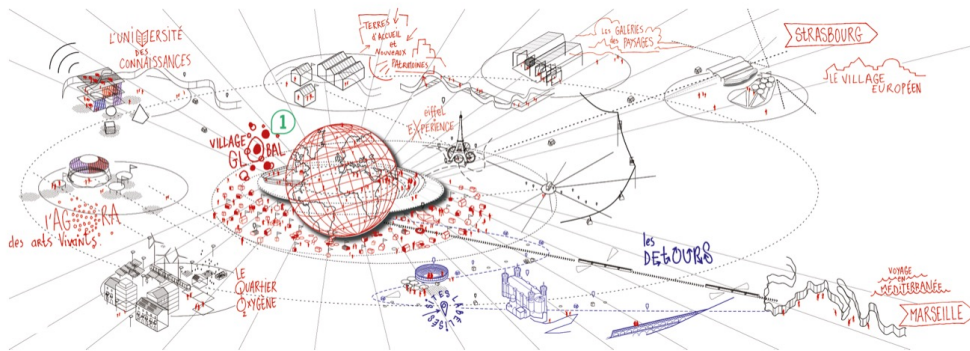 L'UNIVERSITÉ
DES
CONNAISSANCES
TERRES
d'ACCUEIL
et
NOUVEAUX
PATRIMOINES
LES GALERIES
des
PAYSAGES
STRASBOURG
LE VILLAGE
EUROPÉEN
1
VILLAGE
GLOBAL
eiffel
EXPERIENCE
l'AGORA
des arts vivants!
LE
QUARTIER
OXYGÈNE
2
les
DETOURS
LES LABELLISÉS
VOYAGE
EN
MÉDITERRANÉE
MARSEILLE